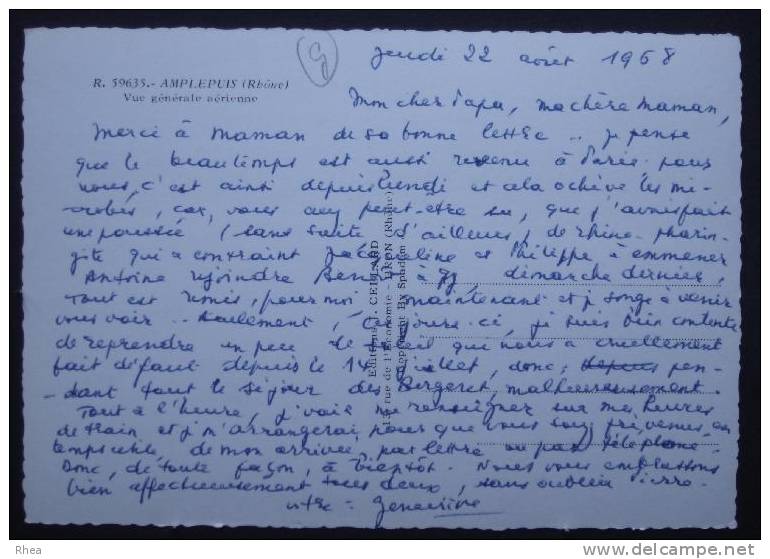 g
Jeudi 22 août 1968
R. 59635.- AMPLEPUIS (Rhône)
Vue générale aérienne
Mon cher Papa, ma chère Maman,
Merci à Maman de sa bonne lettre .. je pense
que le beau temps est aussi revenu à Paris. pour
nous, c'est ainsi depuis lundi et cela achève les mi-
crobes, car, vous avez peut-être su, que j'avais fait
une poussée (sans suite d'ailleurs) de rhino-pharin-
gite qui a contraint Jacqueline et Philippe à emmener
Antoine rejoindre à dimanche dernier,
tout est remis, pour moi, maintenant et je songe à venir
vous voir .. seulement, ces jours-ci, je suis bien contente
de reprendre un peu de soleil qui nous a cruellement
fait défaut depuis le 14 juillet, donc, depuis pen-
-dant tout le séjour des Bergeret, malheureusement.
Tout à l'heure, j'vais me renseigner sur mes heures
de train et je m'arrangerai pour que vous soyez prévenus, en
temps utile, de mon arrivée, par lettre ou par téléphone.
Donc, de toute façon, à bientôt. Nous vous embrassons
bien affectueusement tous deux, sans oublier Pierre.
votre - Geneviève
Editions J. CELLARD
13, rue de l'Economie - BRON (Rhône)
Copyright By Spadem
Rhea
www.delcampe.net